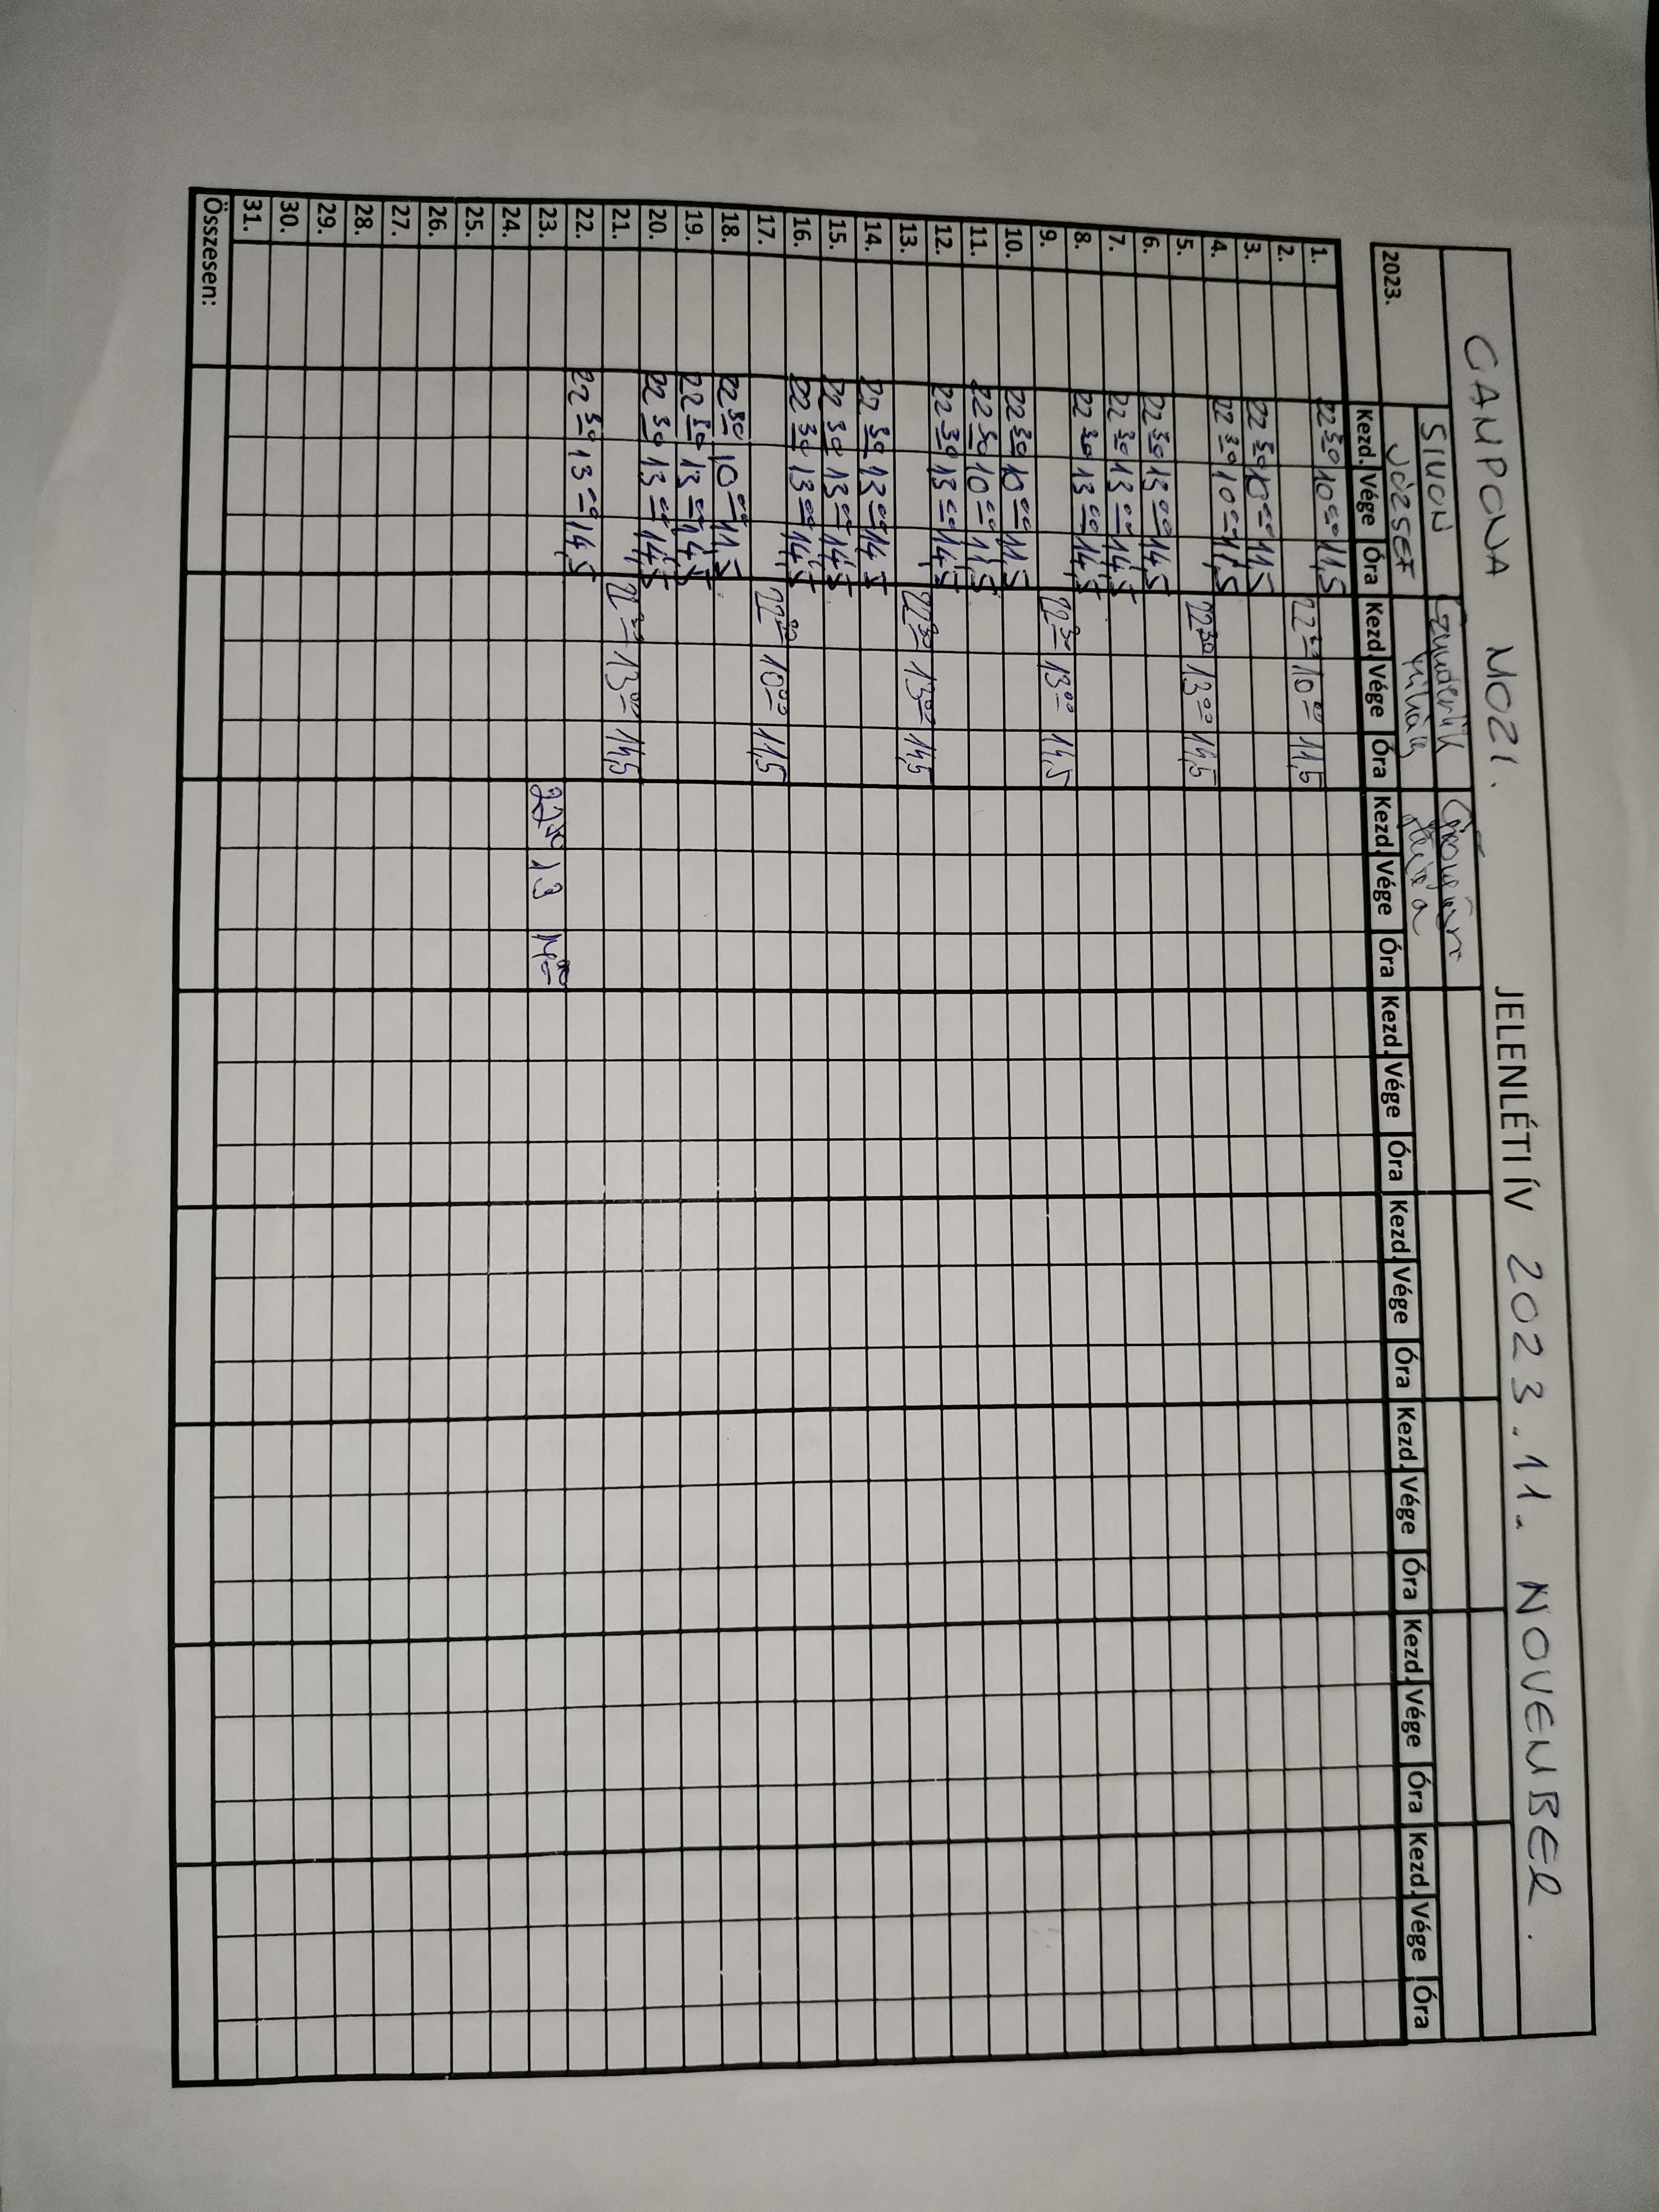 CAMPONA MOZI. JELENLÉTI ÍV 2023.11. NOVEMBER.
SIMON
2023. JÓZSEF
Kezd. Vége Óra Kezd. Vége Óra Kezd. Vége Óra Kezd. Vége Óra Kezd. Vége Óra Kezd. Vége Óra Kezd. Vége Óra Kezd. Vége Óra
1. 22 30 10 00 11,5
2. 22 30 10 00 11,5
3. 22 30 10 00 11,5
4. 22 30 10 00 11,5
5. 22 30 13 00 14,5
6. 22 30 13 00 14,5
7. 22 30 13 00 14,5
8. 22 30 13 00 14,5
9. 22 30 13 00 14,5
10. 22 30 10 00 11,5
11. 22 30 10 00 11,5
12. 22 30 13 00 14,5
13. 22 30 13 00 14,5
14. 22 30 13 00 14,5
15. 22 30 13 00 14,5
16. 22 30 13 00 14,5
17. 22 30 10 00 11,5
18. 22 30 10 00 11,5
19. 22 30 13 00 14,5
20. 22 30 13 00 14,5
21. 22 30 13 00 14,5
22. 22 30 13 00 14,5
23. 22 30 13
24.
25.
26.
27.
28.
29.
30.
31.
Összesen: